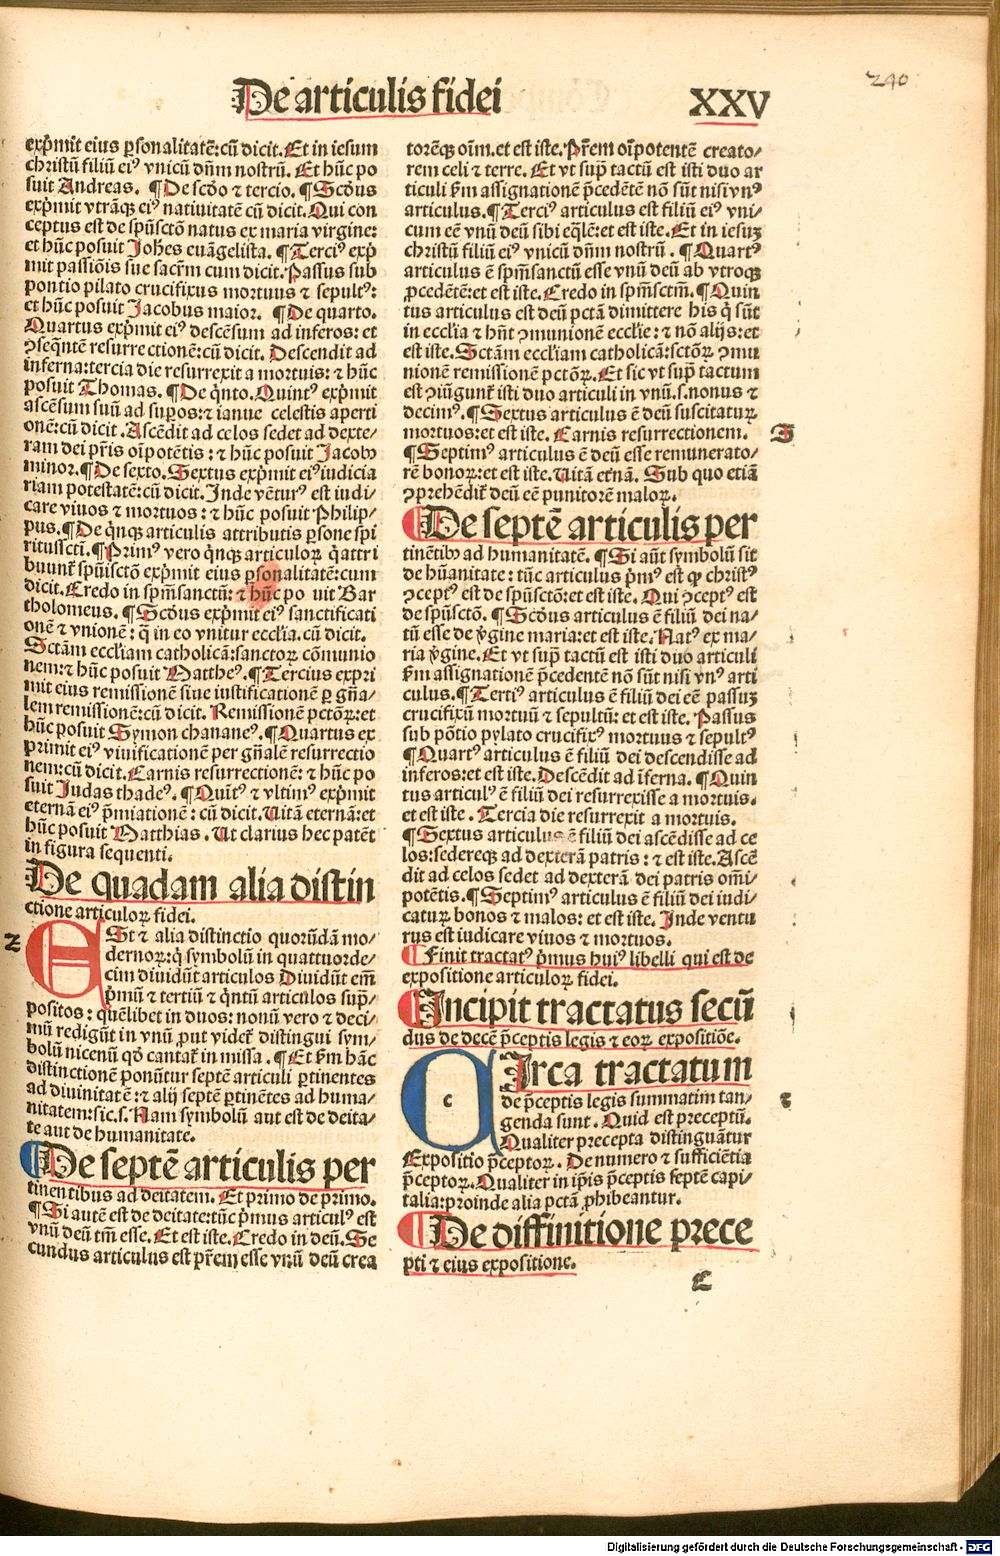 240
De articulis fidei
XXV
exp̄mit eius ꝑsonalitatē: cū dicit. Et in iesum
christū filiū eiꝰ vnicū dn̄m nostrū. Et hūc po
suit Andreas. ¶ De scd̄o ⁊ tercio. ¶ Scd̄us
exp̄mit vtrāqꝫ eiꝰ natiuitatē cū dicit. Qui con
ceptus est de spūsctō natus ex maria virgine:
et hūc posuit Joh̄es euāgelista. ¶ Terciꝰ exp̄
mit passiōis sue sacr̄m cum dicit. Passus sub
pontio pilato crucifixus mortuus ⁊ sepultꝰ:
et hūc posuit Jacobus maior. ¶ De quarto.
Quartus exp̄mit eiꝰ descēsum ad inferos: et
ꝯseq̄ntē resurrectionē: cū dicit. Descendit ad
inferna: tercia die resurrexit a mortuis: ⁊ hūc
posuit Thomas. ¶ De q̄nto. Quintꝰ exp̄mit
ascēsum suū ad suꝑos: ⁊ ianue celestis aperti
onē: cū dicit. Ascēdit ad celos sedet ad dexte/
ram dei pr̄is oīpotētis: ⁊ hūc posuit Jacobꝰ
minor. ¶ De sexto. Sextus exp̄mit eiꝰ iudicia
riam potestatē: cū dicit. Inde vēturꝰ est iudi/
care viuos ⁊ mortuos: ⁊ hūc posuit Philip/
pus. ¶ De q̄nqꝫ articulis attributis ꝑsone spi
ritussctī. ¶ Primꝰ vero q̄nqꝫ articuloꝝ q̄ attri
buunt̄ spūisctō exp̄mit eius ꝑsonalitatē: cum
dicit. Credo in spm̄sanctū: ⁊ hūc po uit Bar
tholomeus. ¶ Scd̄us exp̄mit eiꝰ sanctificati
onē ⁊ vnionē: q̄ in eo vnitur eccl̄ia. cū dicit.
Sctām eccl̄iam catholicā: sanctoꝝ cōmunio
nem: ⁊ hūc posuit Mattheꝰ. ¶ Tercius expri
mit eius remissionē siue iustificationē ꝑ gn̄a/
lem remissionē: cū dicit. Remissionē pctōꝝ: et
hūc posuit Symon chananeꝰ. ¶ Quartus ex
primit eiꝰ viuificationē per gn̄alē resurrectio
nem: cū dicit. Carnis resurrectionē: ⁊ hūc po
suit Judas thadeꝰ. ¶ Quītꝰ ⁊ vltimꝰ exp̄mit
eternā eiꝰ p̄miationē: cū dicit. Uitā eternā: et
hūc posuit Matthias. Ut clarius hec patēt
in figura sequenti.
De quadam alia distin
ctione articuloꝝ fidei.
ESt ⁊ alia distinctio quorūdā mo/
dernoꝝ: q̄ symbolū in quattuorde/
cim diuidūt articulos Diuidūt em̄
p̄mū ⁊ tertiū ⁊ q̄ntū articulos sup̄/
positos: quēlibet in duos: nonū vero ⁊ deci/
mū redigūt in vnū ꝓut videt̄ distingui sym/
bolū nicenū qd̄ cantat̄ in missa. ¶ Et ẜm hāc
distinctionē ponūtur septē articuli ꝑtinentes
ad diuinitatē: ⁊ alij septē ꝑtinētes ad huma/
nitatem: sic. s. Nam symbolū aut est de deita/
te aut de humanitate.
¶ De septē articulis per
tinentibus ad deitatem. Et primo de primo.
¶ Si autē est de deitate: tūc p̄mus articulꝰ est
vnū deū tm̄ esse. Et est iste. Credo in deū. Se
cundus articulus est pr̄em esse vnū deū crea
torēqꝫ oīm. et est iste. Pr̄em oīpotentē creato/
rem celi ⁊ terre. Et vt sup̄ tactū est isti duo ar
ticuli ẜm assignationē p̄cedētē nō sūt nisi vnꝰ
articulus. ¶ Terciꝰ articulus est filiū eiꝰ vni/
cum eē vnū deū sibi eq̄lē: et est iste. Et in iesuꝫ
christū filiū eiꝰ vnicū dn̄m nostrū. ¶ Quartꝰ
articulus ē spm̄sanctū esse vnū deū ab vtroqꝫ
ꝓcedētē: et est iste. Credo in spm̄sctm̄. ¶ Quin
tus articulus est deū pctā dimittere his q̄ sūt
in eccl̄ia ⁊ hn̄t ꝯmunionē eccl̄ie: ⁊ nō alijs: et
est iste. Sctām eccl̄iam catholicā: sctōꝝ ꝯmu
nionē remissionē pctōꝝ. Et sic vt sup̄ tactum
est ꝯiūgunt̄ isti duo articuli in vnū. s. nonus ⁊
decimꝰ. ¶ Sextus articulus ē deū suscitatuꝝ
mortuos: et est iste. Carnis resurrectionem.
¶ Septimꝰ articulus ē deū esse remunerato/
rē bonoꝝ: et est iste. Uitā etnā. Sub quo etiā
ꝯprehēdit̄ deū eē punitorē maloꝝ.
¶ De septē articulis per
tinētibꝰ ad humanitatē. ¶ Si aūt symbolū sit
de hūanitate: tūc articulus p̄mꝰ est ꝙ christꝰ
ꝯceptꝰ est de spūsctō: et est iste. Qui ꝯceptꝰ est
de spūsctō. ¶ Scd̄us articulus ē filiū dei na/
tū esse de v̄gine maria: et est iste. Natꝰ ex ma/
ria v̄gine. Et vt sup̄ tactū est isti duo articuli
ẜm assignationē p̄cedentē nō sūt nisi vnꝰ arti
culus. ¶ Tertiꝰ articulus ē filiū dei eē passuꝫ
crucifixū mortuū ⁊ sepultū: et est iste. Passus
sub pōtio pylato crucifixꝰ mortuus ⁊ sepultꝰ
¶ Quartꝰ articulus ē filiū dei descendisse ad
inferos: et est iste. Descēdit ad īferna. ¶ Quin
tus articulꝰ ē filiū dei resurrexisse a mortuis.
et est iste. Tercia die resurrexit a mortuis.
¶ Sextus articulus ē filiū dei ascēdisse ad ce
los: sedereqꝫ ad dexterā patris: ⁊ est iste. Ascē
dit ad celos sedet ad dexterā dei patris om̄i/
potētis. ¶ Septimꝰ articulus ē filiū dei iudi/
catuꝝ bonos ⁊ malos: et est iste. Inde ventu
rus est iudicare viuos ⁊ mortuos.
¶ Finit tractatꝰ p̄mus huiꝰ libelli qui est de
expositione articuloꝝ fidei.
¶ Incipit tractatus secū
dus de decē p̄ceptis legis ⁊ eoꝝ expositiōe.
cIrca tractatum
de p̄ceptis legis summatim tan/
genda sunt. Quid est preceptū.
Qualiter precepta distinguātur
Expositio p̄ceptoꝝ. De numero ⁊ sufficiētia
p̄ceptoꝝ. Qualiter in ip̄is p̄ceptis septē capi/
talia: proinde alia pctā ꝓhibeantur.
¶ De diffinitione prece
pti ⁊ eius expositione.
Digitalisierung gefördert durch die Deutsche Forschungsgemeinschaft - DFG